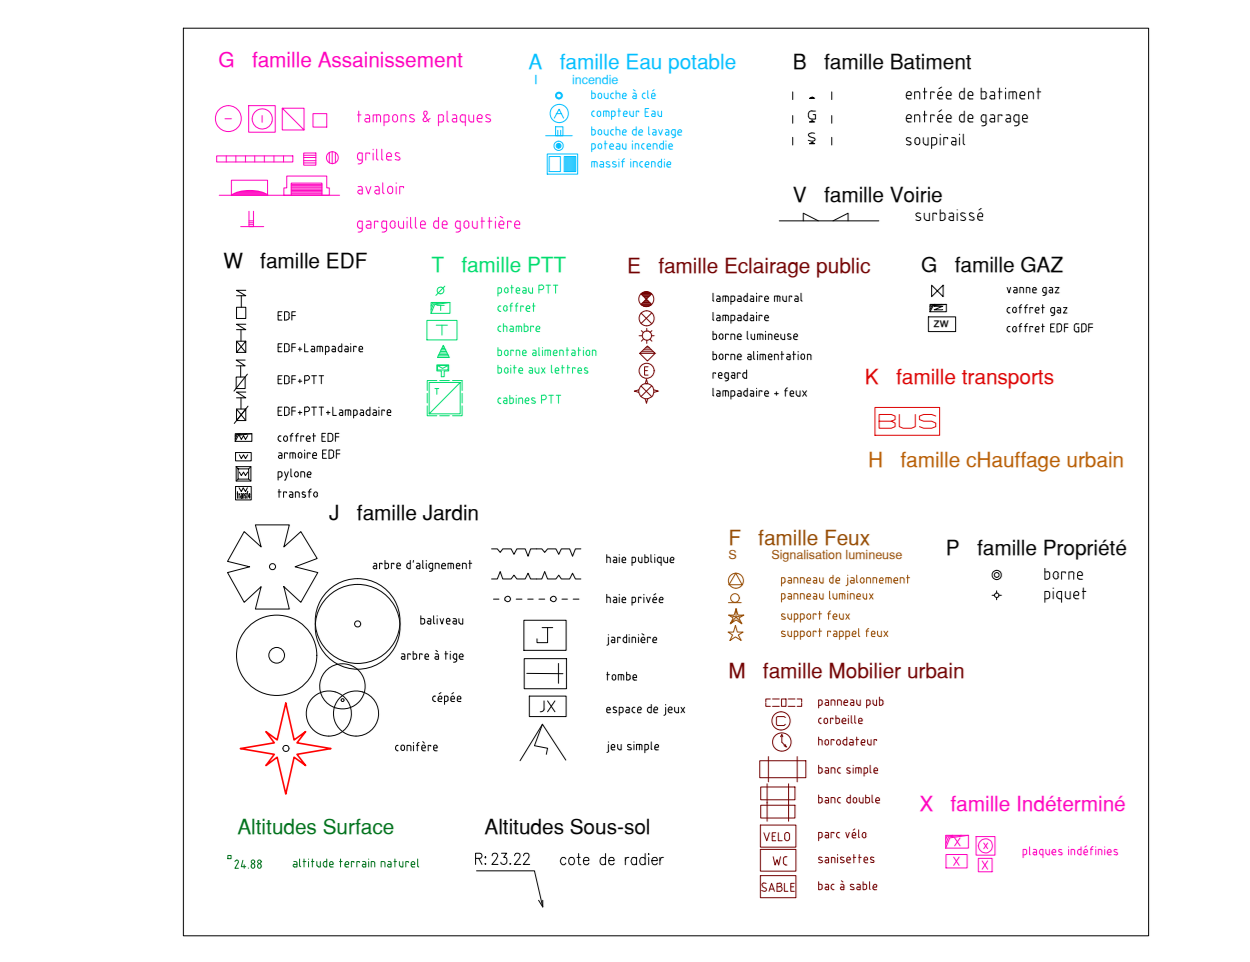 G famille Assainissement
tampons & plaques
grilles
avaloir
gargouille de gouttière
A famille Eau potable
I incendie
bouche à clé
A compteur Eau
bouche de lavage
poteau incendie
massif incendie
B famille Batiment
entrée de batiment
G entrée de garage
S soupirail
V famille Voirie
surbaissé
W famille EDF
EDF
EDF+Lampadaire
EDF+PTT
EDF+PTT+Lampadaire
coffret EDF
W armoire EDF
W pylone
W transfo
T famille PTT
poteau PTT
T coffret
T chambre
borne alimentation
boite aux lettres
T cabines PTT
E famille Eclairage public
lampadaire mural
lampadaire
borne lumineuse
borne alimentation
E regard
lampadaire + feux
G famille GAZ
vanne gaz
coffret gaz
ZW coffret EDF GDF
K famille transports
BUS
H famille cHauffage urbain
J famille Jardin
arbre d'alignement
baliveau
arbre à tige
cépée
conifère
haie publique
haie privée
J jardinière
tombe
JX espace de jeux
jeu simple
F famille Feux
S Signalisation lumineuse
panneau de jalonnement
panneau lumineux
support feux
support rappel feux
P famille Propriété
borne
piquet
M famille Mobilier urbain
panneau pub
C corbeille
horodateur
banc simple
banc double
VELO parc vélo
WC sanisettes
SABLE bac à sable
X famille Indéterminé
X X
X X
plaques indéfinies
Altitudes Surface
24.88 altitude terrain naturel
Altitudes Sous-sol
R: 23.22 cote de radier